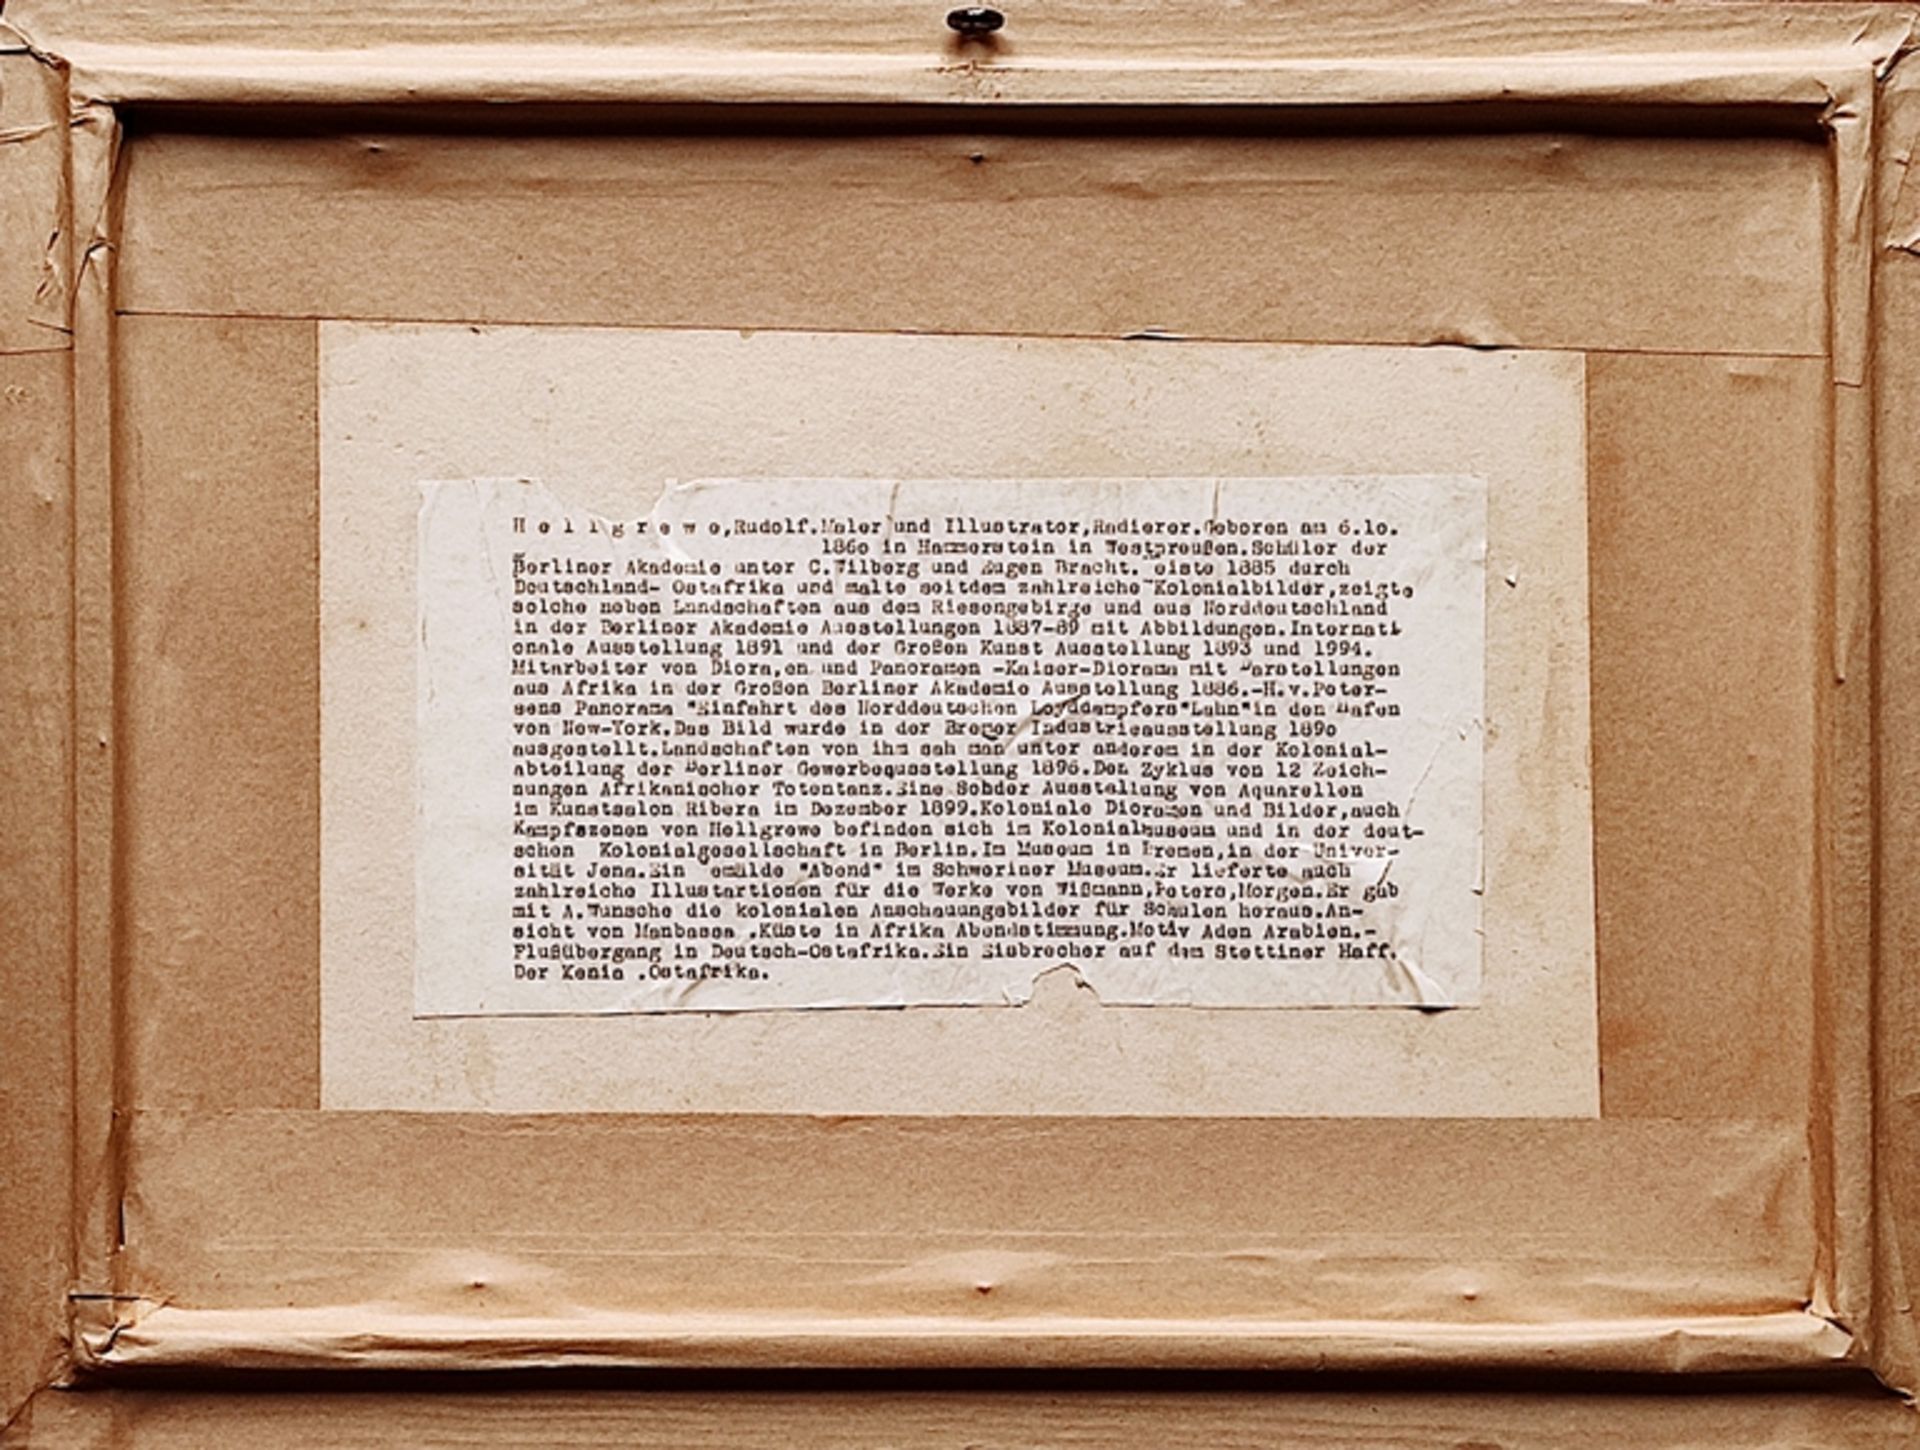 H e l l g r e w e,Rudolf.Maler und Illustrator,Radierer.Geboren am 6.lo.
186o in Hammerstein in Westpreußen.Schüler der
Berliner Akademie unter C.Wilberg und Eugen Bracht. eiste 1885 durch
Deutschland- Ostafrika und malte seitdem zahlreiche Kolonialbilder,zeigte
solche neben Landschaften aus dem Riesengebirge und aus Norddeutschland
in der Berliner Akademie Ausstellungen 1887-89 mit Abbildungen.Internati
onale Ausstellung 1891 und der Großen Kunst Ausstellung 1893 und 1994.
Mitarbeiter von Diora,en und Panoramen -Kaiser-Diorama mit Darstellungen
aus Afrika in der Großen Berliner Akademie Ausstellung 1886.-H.v.Peter-
sens Panorama "Einfahrt des Norddeutschen Loyddampfers"Lahn"in den Hafen
von New-York.Das Bild wurde in der Bremer Industrieausstellung 189o
ausgestellt.Landschaften von ihm sah man unter anderem in der Kolonial-
abteilung der Berliner Gewerbequsstellung 1896.Den Zyklus von 12 Zeich-
nungen Afrikanischer Totentanz.Eine Sonder Ausstellung von Aquarellen
im Kunstsalon Ribera im Dezember 1899.Koloniale Dioramen und Bilder,auch
Kampfszenen von Hellgrewe befinden sich im Kolonialmuseum und in der deut-
schen Kolonialgesellschaft in Berlin.Im Museum in Bremen,in der Univer-
sität Jena.Ein emälde "Abend" im Schweriner Museum.Er lieferte auch
zahlreiche Illustartionen für die Werke von Wißmann,Peters,Morgen.Er gab
mit A.Wunsche die kolonialen Anschauungsbilder für Schulen heraus.An-
sicht von Manbassa .Küste in Afrika Abendstimmung.Motiv Aden Arabien.-
Flußübergang in Deutsch-Ostafrika.Ein Eisbrecher auf dem Stettiner Haff.
Der Kenia .Ostafrika.